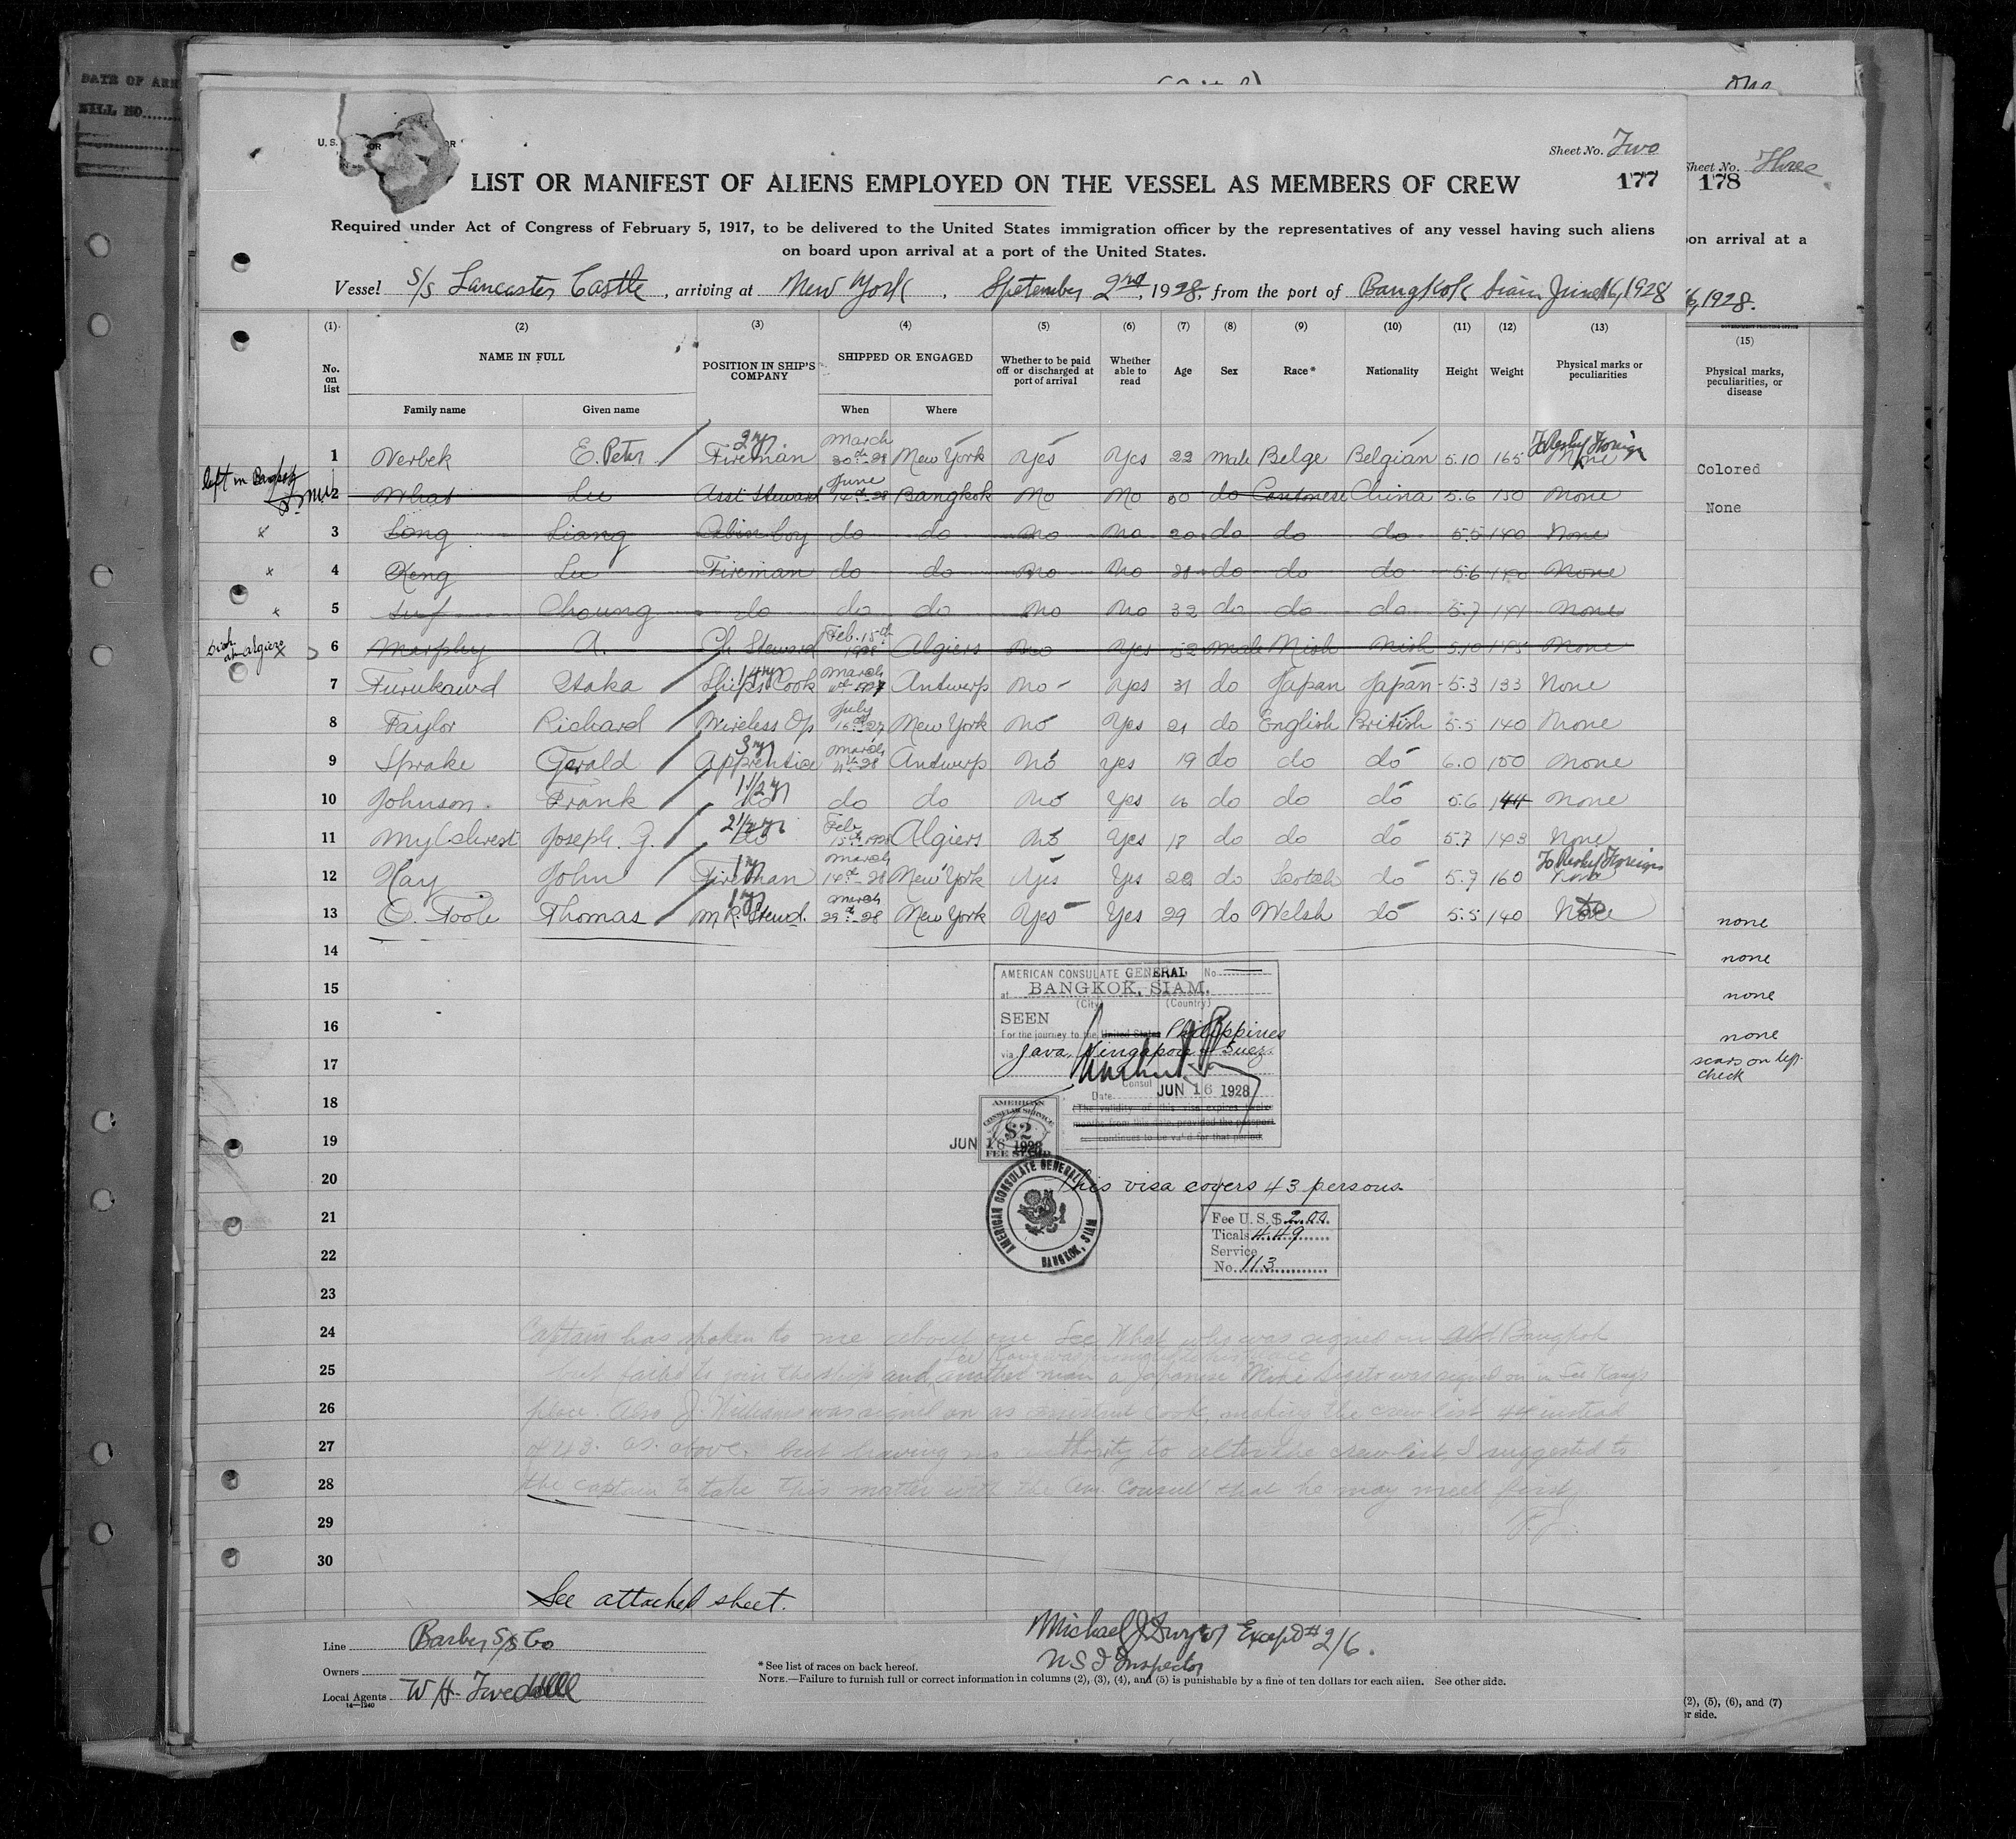 DATE OF ARR
BILL NO.
U. S.
Sheet No. Two
177
Sheet No. Three
178
LIST OR MANIFEST OF ALIENS EMPLOYED ON THE VESSEL AS MEMBERS OF CREW
Required under Act of Congress of February 5, 1917, to be delivered to the United States immigration officer by the representatives of any vessel having such aliens
on board upon arrival at a port of the United States.
pon arrival at a
Vessel S/S Lancaster Castle, arriving at New York, Spetember 2nd, 1928, from the port of Bangkok Siam June 16, 1928
6, 1928.
(1) (2) (3) (4) (5) (6) (7) (8) (9) (10) (11) (12) (13) (15)
No. on list
NAME IN FULL
Family name Given name
POSITION IN SHIP'S COMPANY
SHIPPED OR ENGAGED
When Where
Whether to be paid off or discharged at port of arrival
Whether able to read
Age Sex Race* Nationality Height Weight
Physical marks or peculiarities
Physical marks, peculiarities, or disease
1 Verbek E. Peter 2 yr Fireman March 30th-28 New York Yes Yes 22 male Belge Belgian 5.10 165 None
Colored
left in Bangkok
2 What Lee Asst Steward June 14th-28 Bangkok No No 30 do Cantonese China 5.6 150 None
None
x 3 Song Liang Cabin boy do do No No 20 do do do 5.5 140 None
x 4 Keng Lee Fireman do do No No 28 do do do 5.6 140 None
x 5 Choung do do do No No 32 do do do 5.7 141 None
6 Murphy A. Ch. Steward Feb. 15th 1928 Algiers No Yes 52 male 5.10 None
7 Itaka Ship's Cook March Antwerp No Yes 31 do Japan Japan 5.3 133 None
8 Taylor Richard Wireless Op July New York No Yes 21 do English British 5.5 140 None
9 Sprake Gerald 3 yr Apprentice March 4th-28 Antwerp No Yes 19 do do do 6.0 150 None
10 Johnson Frank 1 1/2 yr do do do No Yes 16 do do do 5.6 144 None
11 Joseph. G. 2 1/2 yr do Feb 15th 1928 Algiers No Yes 18 do do do 5.7 143 None
12 Hay John 1 yr Fireman March 14th-28 New York Yes Yes do Scotch do 5.9 160
13 O. Toole Thomas 1 yr M.R. Stewd. March 29th-28 New York Yes Yes 29 do Welsh do 5.5 140 None
none
14
none
15
none
16
none
17
scars on left
check
18
19
20
21
22
23
24
25
26
27
28
29
30
AMERICAN CONSULATE GENERAL No.
at BANGKOK, SIAM.
(City) (Country)
SEEN
For the journey to the United States Philippines
via Java, Singapore & Suez.
Consul
Date JUN 16 1928
(The validity of this visa expires twelve
months from this date, provided the passport
continues to be valid for that period
AMERICAN
CONSULAR SERVICE
$2
FEE STAMP
JUN 16 1928
AMERICAN CONSULATE GENERAL
BANGKOK, SIAM
This visa covers 43 persons.
Fee U. S. $ 2.00
Ticals 4.49
Service
No. 113
Captain has spoken to me about one Lee What who was signed on at Bangkok
but failed to join the ship and another man a Japanese was signed on in Lee Kang's
place. Also J. Williams was signed on as assistant cook, making the crew list 44 instead
of 43. as above, but having no authority to alter the crew list, I suggested to
the captain to take this matter with the Am. Consul that he may meet first.
See attached sheet.
Line Barber S/S Co
Owners
Local Agents W H. Tweddell
14—1240
Michael J Dwyer
U S I Inspector
* See list of races on back hereof.
NOTE.—Failure to furnish full or correct information in columns (2), (3), (4), and (5) is punishable by a fine of ten dollars for each alien. See other side.
(2), (5), (6), and (7)
er side.